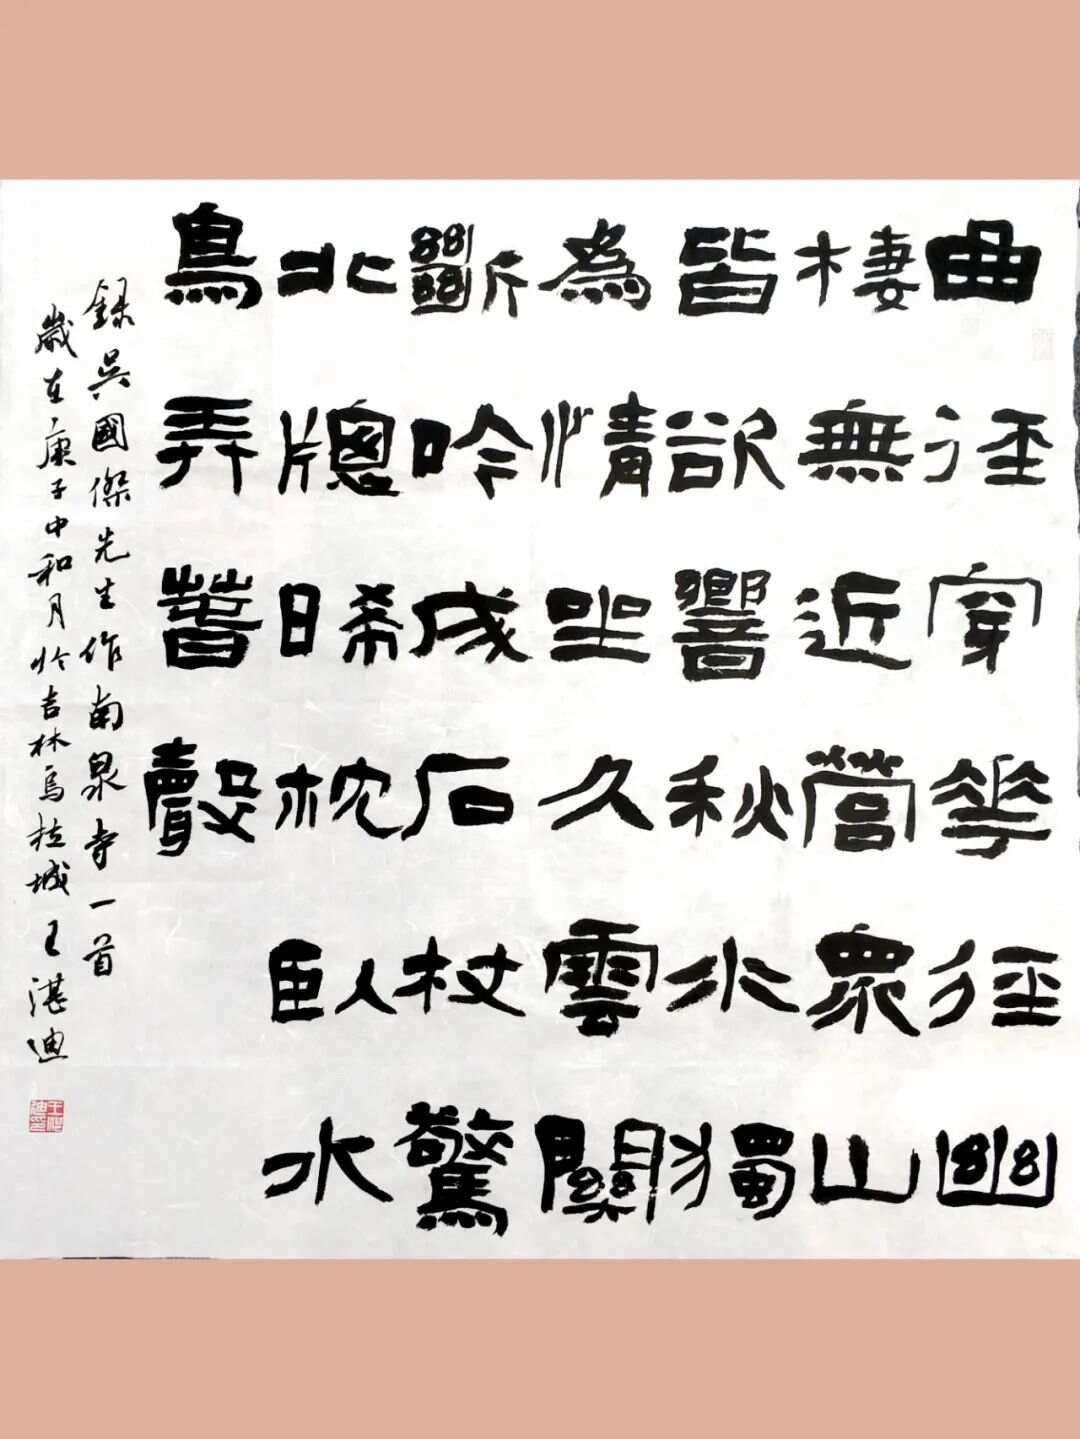 曲徑穿華徑幽
棲無近營眾山
皆欲響秋水獨
為情坐久雲關
斷吟成石杖驚
北牕晞枕臥水
鳥弄聲
録吳國傑先生作南泉寺一首
歲在庚子中和月於吉林烏拉城王湛迪